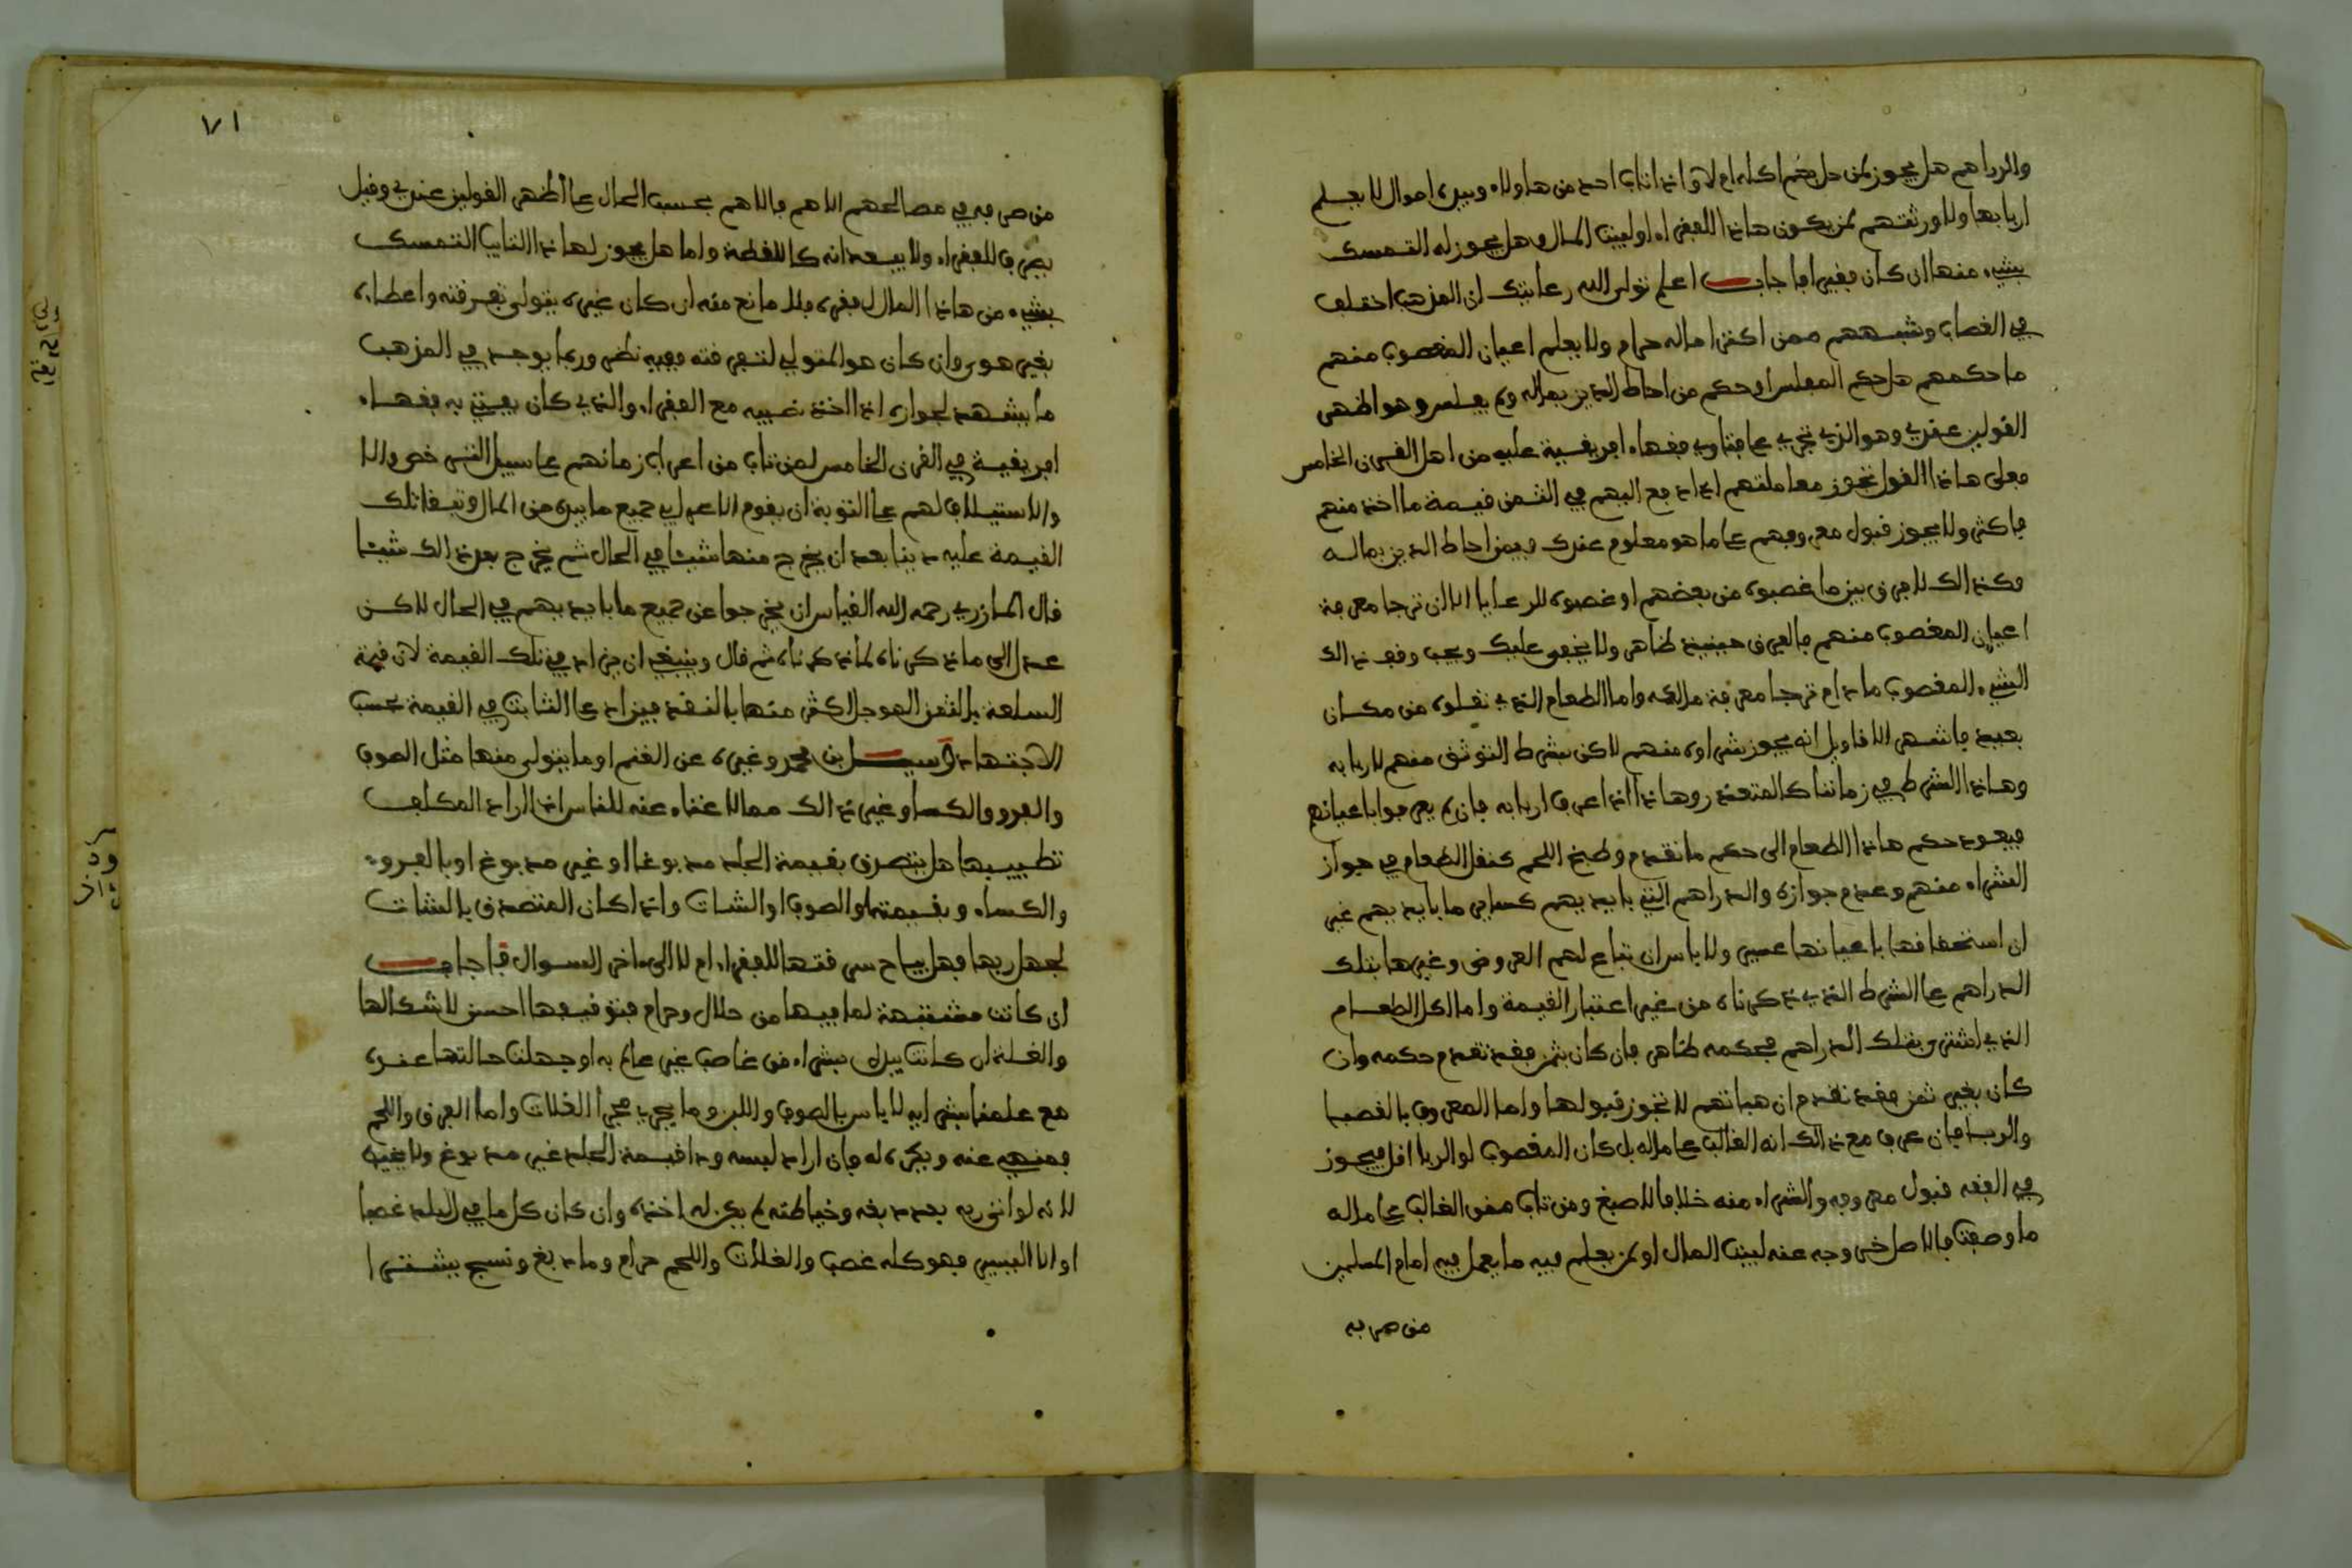 والدراهم هل يجوز لمن حل بهم اكله ام لا واذا تاب احد من هاولاء وبيده اموال لا يعلم
اربابها ولا ورثتهم لمن يكون هاذا للفقراء او لبيت المال وهل يجوز له التمسك
بشيء منها ان كان فقيرا فاجاب اعلم تولى الله رعايتك ان المذهب اختلف
في الغصاب وشبههم ممن اكثر ماله حرام ولا يعلم اعيان المغصوب منهم
ما حكمهم هل حكم المفلس او حكم من احاط الدين بماله ولم يفلس وهو اظهر
القولين عندي وهو الذي تجري عليه فتاوي فقهاء افريقية عليه من اهل القرن الخامس
فعلى هاذا القول تجوز معاملتهم اذا دفع اليهم في الثمن قيمة ما اخذ منهم
فاكثر ولا يجوز قبول معروفهم على ما هو معلوم عندك فيمن احاط الدين بماله
وكذالك لا فرق بين ما غصبوه من بعضهم او غصبوه للرعايا الا ان ترجا معرفة
اعيان المغصوب منهم فالفرق حينيذ ظاهر ولا يخفى عليك ويجب وقف ذالك
الشيء المغصوب ما دام ترجا معرفة مالكه واما الطعام الذي نقلوه من مكان
بعيد فاشهر الاقاويل انه يجوز شراوه منهم لاكن بشرط التوثق منهم لاربابه
وهاذا الشرط في زماننا كالمتعذر وهاذا اذا عرف اربابه فان لم يعرفوا باعيانهم
فيعود حكم هاذا الطعام الى حكم ما تقدم وطبخ اللحم كنقل الطعام في جواز
الشراء منهم وعدم جوازه والدراهم التي بايديهم كساير ما بايديهم غير
ان استحقاقها باعيانها عسير ولا باس ان تباع لهم العروض وغيرها بتلك
الدراهم على الشرط الذي ذكرناه من غير اعتبار القيمة واما اكل الطعام
الذي اشتري بتلك الدراهم فحكمه ظاهر فان كان بثمن فقد تقدم حكمه وان
كان بغير ثمن فقد تقدم ان هباتهم لا تجوز قبولها واما المعروف بالغصب
والربا فان عرف مع ذالك انه الغالب على ماله بل كان المغصوب او الربا اقل فيجوز
في الفقه قبول معروفه والشراء منه خلافا لاصبغ ومن تاب ممن الغالب على ماله
ما وصفت فالاصل خروجه عنه لبيت المال او لمن يعلم فيه ما يعمل فيه امام المسلمين
من صرفه
٧١
من صرفه في مصالحهم الاهم فالاهم بحسب الحال على اظهر القولين عندي وقيل
يصرف للفقراء ولا يبعد انه كاللقطة واما هل يجوز لهاذا التايب التمسك
بشيء من هاذا المال لفقره فلا مانع منه ان كان غيره يتولى تفرقته واعطاءه
بغير هوى وان كان هو المتولي لتفرقته ففيه نظر وربما يوجد في المذهب
ما يشهد لجوازه اذا اخذ نصيبه مع الفقراء والذي كان يفتي به فقهاء
افريقية في القرن الخامس لمن تاب من اعراب زمانهم على سبيل الترخص والا
والاستيلاف لهم على التوبة ان يقوم الاعرابي جميع ما بيده من المال وتبقا تلك
القيمة عليه دينا بعد ان يخرج منها شيئا في الحال ثم يخرج بعد ذالك شيئا
قال المازري رحمه الله القياس ان يخرجوا عن جميع ما بايديهم في الحال لاكن
عدل الى ما ذكرناه لما ذكرناه ثم قال وينبغي ان يزاد في تلك القيمة لان قيمة
السلعة بالثمن الموجل اكثر منها بالنقد فيزاد على الثابت في القيمة بحسب
الاجتهاد وسيل بن محمد وغيره عن الغنم او ما يتولى منها مثل الصوف
والفرو والكسا وغير ذالك مما لا غناء عنه للناس اذا اراد المكلف
تطييبها هل يتصدق بقيمة الجلد مدبوغا او غير مدبوغ او بالفروة
والكساء وبقيمتها والصوف او الشات واذا كان المتصدق بالشات
لجهل ربها فهل يباح سرفتها للفقراء ام لا الى ءاخر السوال فاجاب
ان كانت مشتبهة لما فيها من حلال وحرام فتوقيفها احسن لاشكالها
والغلة ان كانت بيدك بشراء من غاصب غير عالم به او جهلت حالتها عنده
مع علمنا بشرايه لا باس بالصوف واللبن وما يجري مجرا الغلات واما الفرق واللحم
فمنهي عنه ويكره له فان اراد لبسه ودا قيمة الجلد غير مدبوغ ولا يفيته
لانه لو اتى ربه بعد دبغه وخياطته لم يكن له اخذه وان كان كل ما في البلد غصبا
او الا اليسير فهو كله غصب والغلات واللحم حرام وما دبغ ونسج يشترى